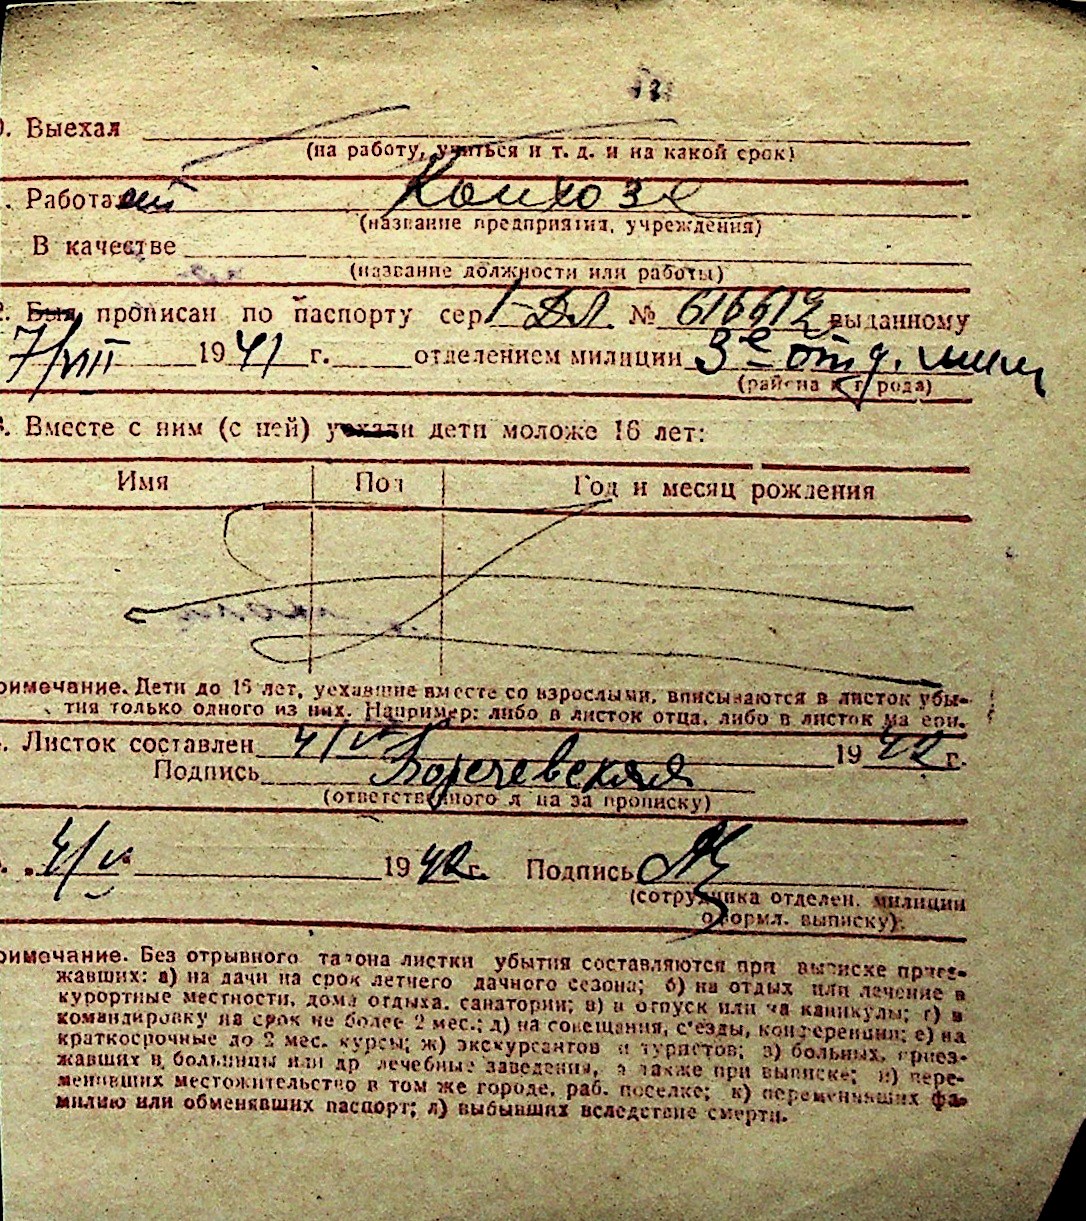 0. Выехал
(на работу, учиться и т. д. и на какой срок)
. Работает Колхозе
(название предприятия, учреждения)
В качестве
(название должности или работы)
2. Был прописан по паспорту сер. 1-ДЛ № 616612 выданному
7/VIII 1941 г. отделением милиции 3е отд. мил
(района и города)
3. Вместе с ним (с ней) уехали дети моложе 16 лет:
Имя Пол Год и месяц рождения
римечание. Дети до 16 лет, уехавшие вместе со взрослыми, вписываются в листок убы-
тия только одного из них. Например: либо в листок отца, либо в листок матери.
. Листок составлен 4/V 1942 г.
Подпись
(ответственного лица за прописку)
. 4/V 1942 г. Подпись
(сотрудника отделен. милиции
оформл. выписку).
римечание. Без отрывного талона листки убытия составляются при выписке приез-
жавших: а) на дачи на срок летнего дачного сезона; б) на отдых или лечение в
курортные местности, дома отдыха, санатории; в) в отпуск или на каникулы; г) в
командировку на срок не более 2 мес.; д) на совещания, с'езды, конференции; е) на
краткосрочные до 2 мес. курсы; ж) экскурсантов и туристов; з) больных, приез-
жавших в больницы или др лечебные заведения, а также при выписке; и) пере-
менивших местожительство в том же городе, раб. поселке; к) переменивших фа-
милию или обменявших паспорт; л) выбывших вследствие смерти.